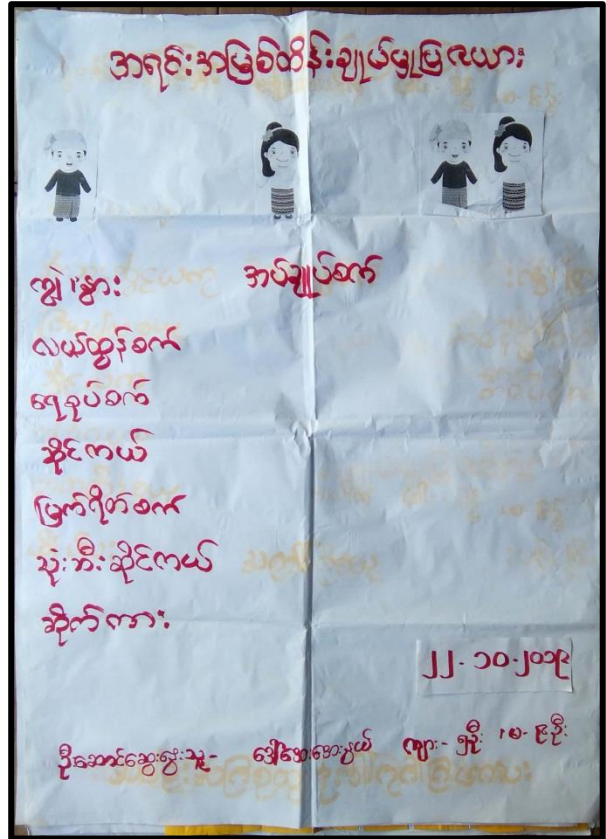 အရင်းအမြစ်ထိန်းချုပ်မှုပြဇယား
ကျွဲ၊နွား အပ်ချုပ်စက်
လယ်ထွန်စက်
ရေစုပ်စက်
ဆိုင်ကယ်
မြက်ရိတ်စက်
သုံးဘီးဆိုင်ကယ်
ဆိုက်ကား
၂၂-၁၀-၂၀၁၉
ဦးဆောင်ဆွေးနွေးသူ- ကျား- ၅ဦး ၊မ- ၉ဦး